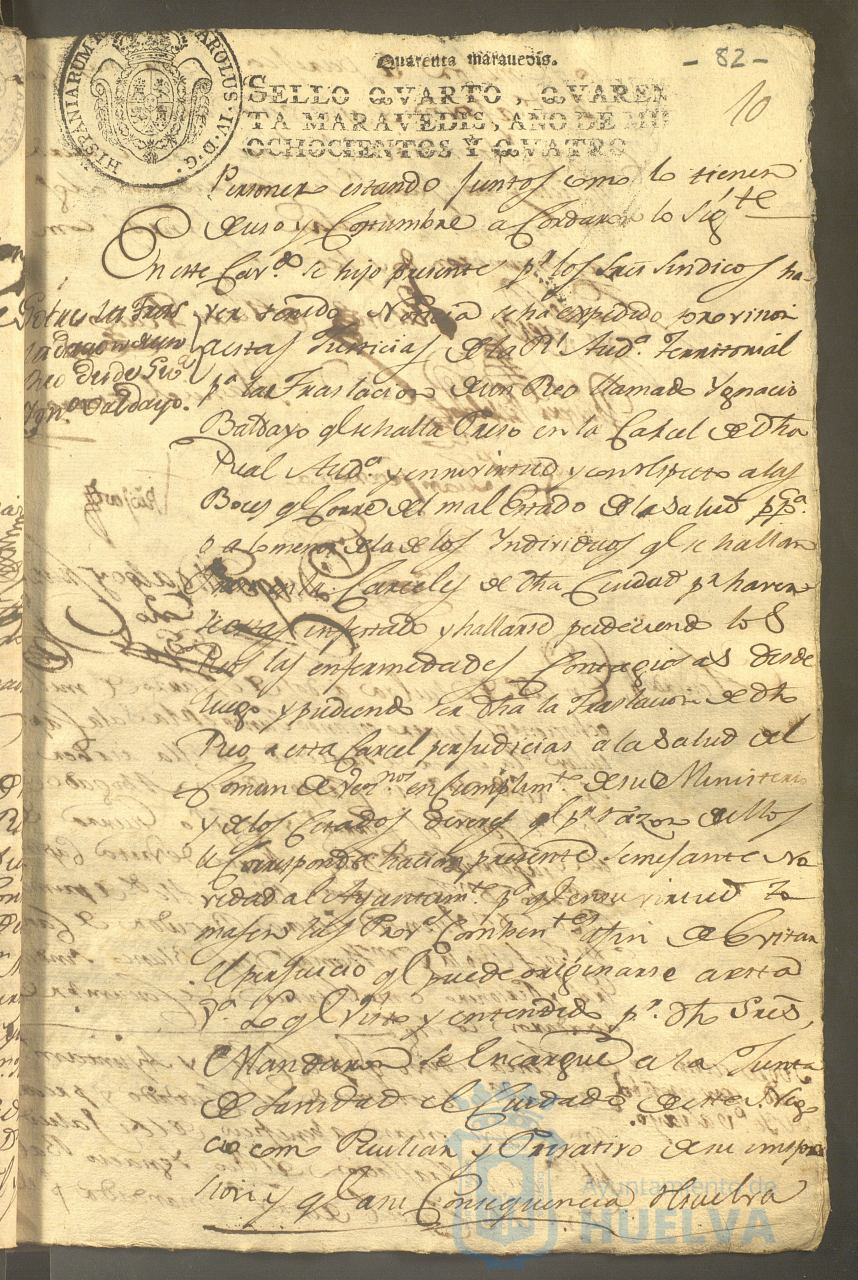 Quarenta maravedis.
- 82 -
10
HISPANIARUM R CAROLUS·IV·D·G·
SELLO QVARTO, QVAREN
TA MARAVEDIS, AÑO DE MIL
OCHOCIENTOS Y QVATRO
Personero estando Juntos como lo tienen
de uso y Costumbre acordaron lo sigte
En este Cavdo se hizo presente pr los Sres Sindicos ha
ver tenido Noticia se ha expedido provision
a estas Justicias de la Rl Auda Territorial
pa la Traslacion de un Reo llamado Ygnacio
Baldayo qe se halla Preso en la Carcel de dha
Real Auda y en su virtud y con respecto a las
Boces qe Corre del mal Estado de la Salud ppca
o a lo menos de la de los Individuos qe se hallan
en las Carceles de dha Ciudad pr haverse
infestado y hallarse padeciendo los
Reos las enfermedades Contagiosas desde
luego y pudiendo ser dha la Traslacion de dho
Reo a esta Carcel perjudicias a la Salud del
Comun de Veznos en Cumplimto de su Ministerio
y de los Cerados deveres qe pr razon de ellos
le Corresponde hacian presente semejante No
vedad al Ayuntamto pa qe en su virtud to
mase las Provas Combentes a fin de Evitar
el perjuicio qe puede originarse a esta
Va Lo qe Visto y entendido pr dhos Sres,
Mandaron se Encargue a la Junta
de Sanidad el Cuidado de este Nego
cio como Peculiar y Privativo de su inspec
sion y qe a su Consequencia debuelva
Sobre la Tras
lacion de un
Reo desde Seva
Ygno Valdayo.
Ayuntamiento de
HUELVA